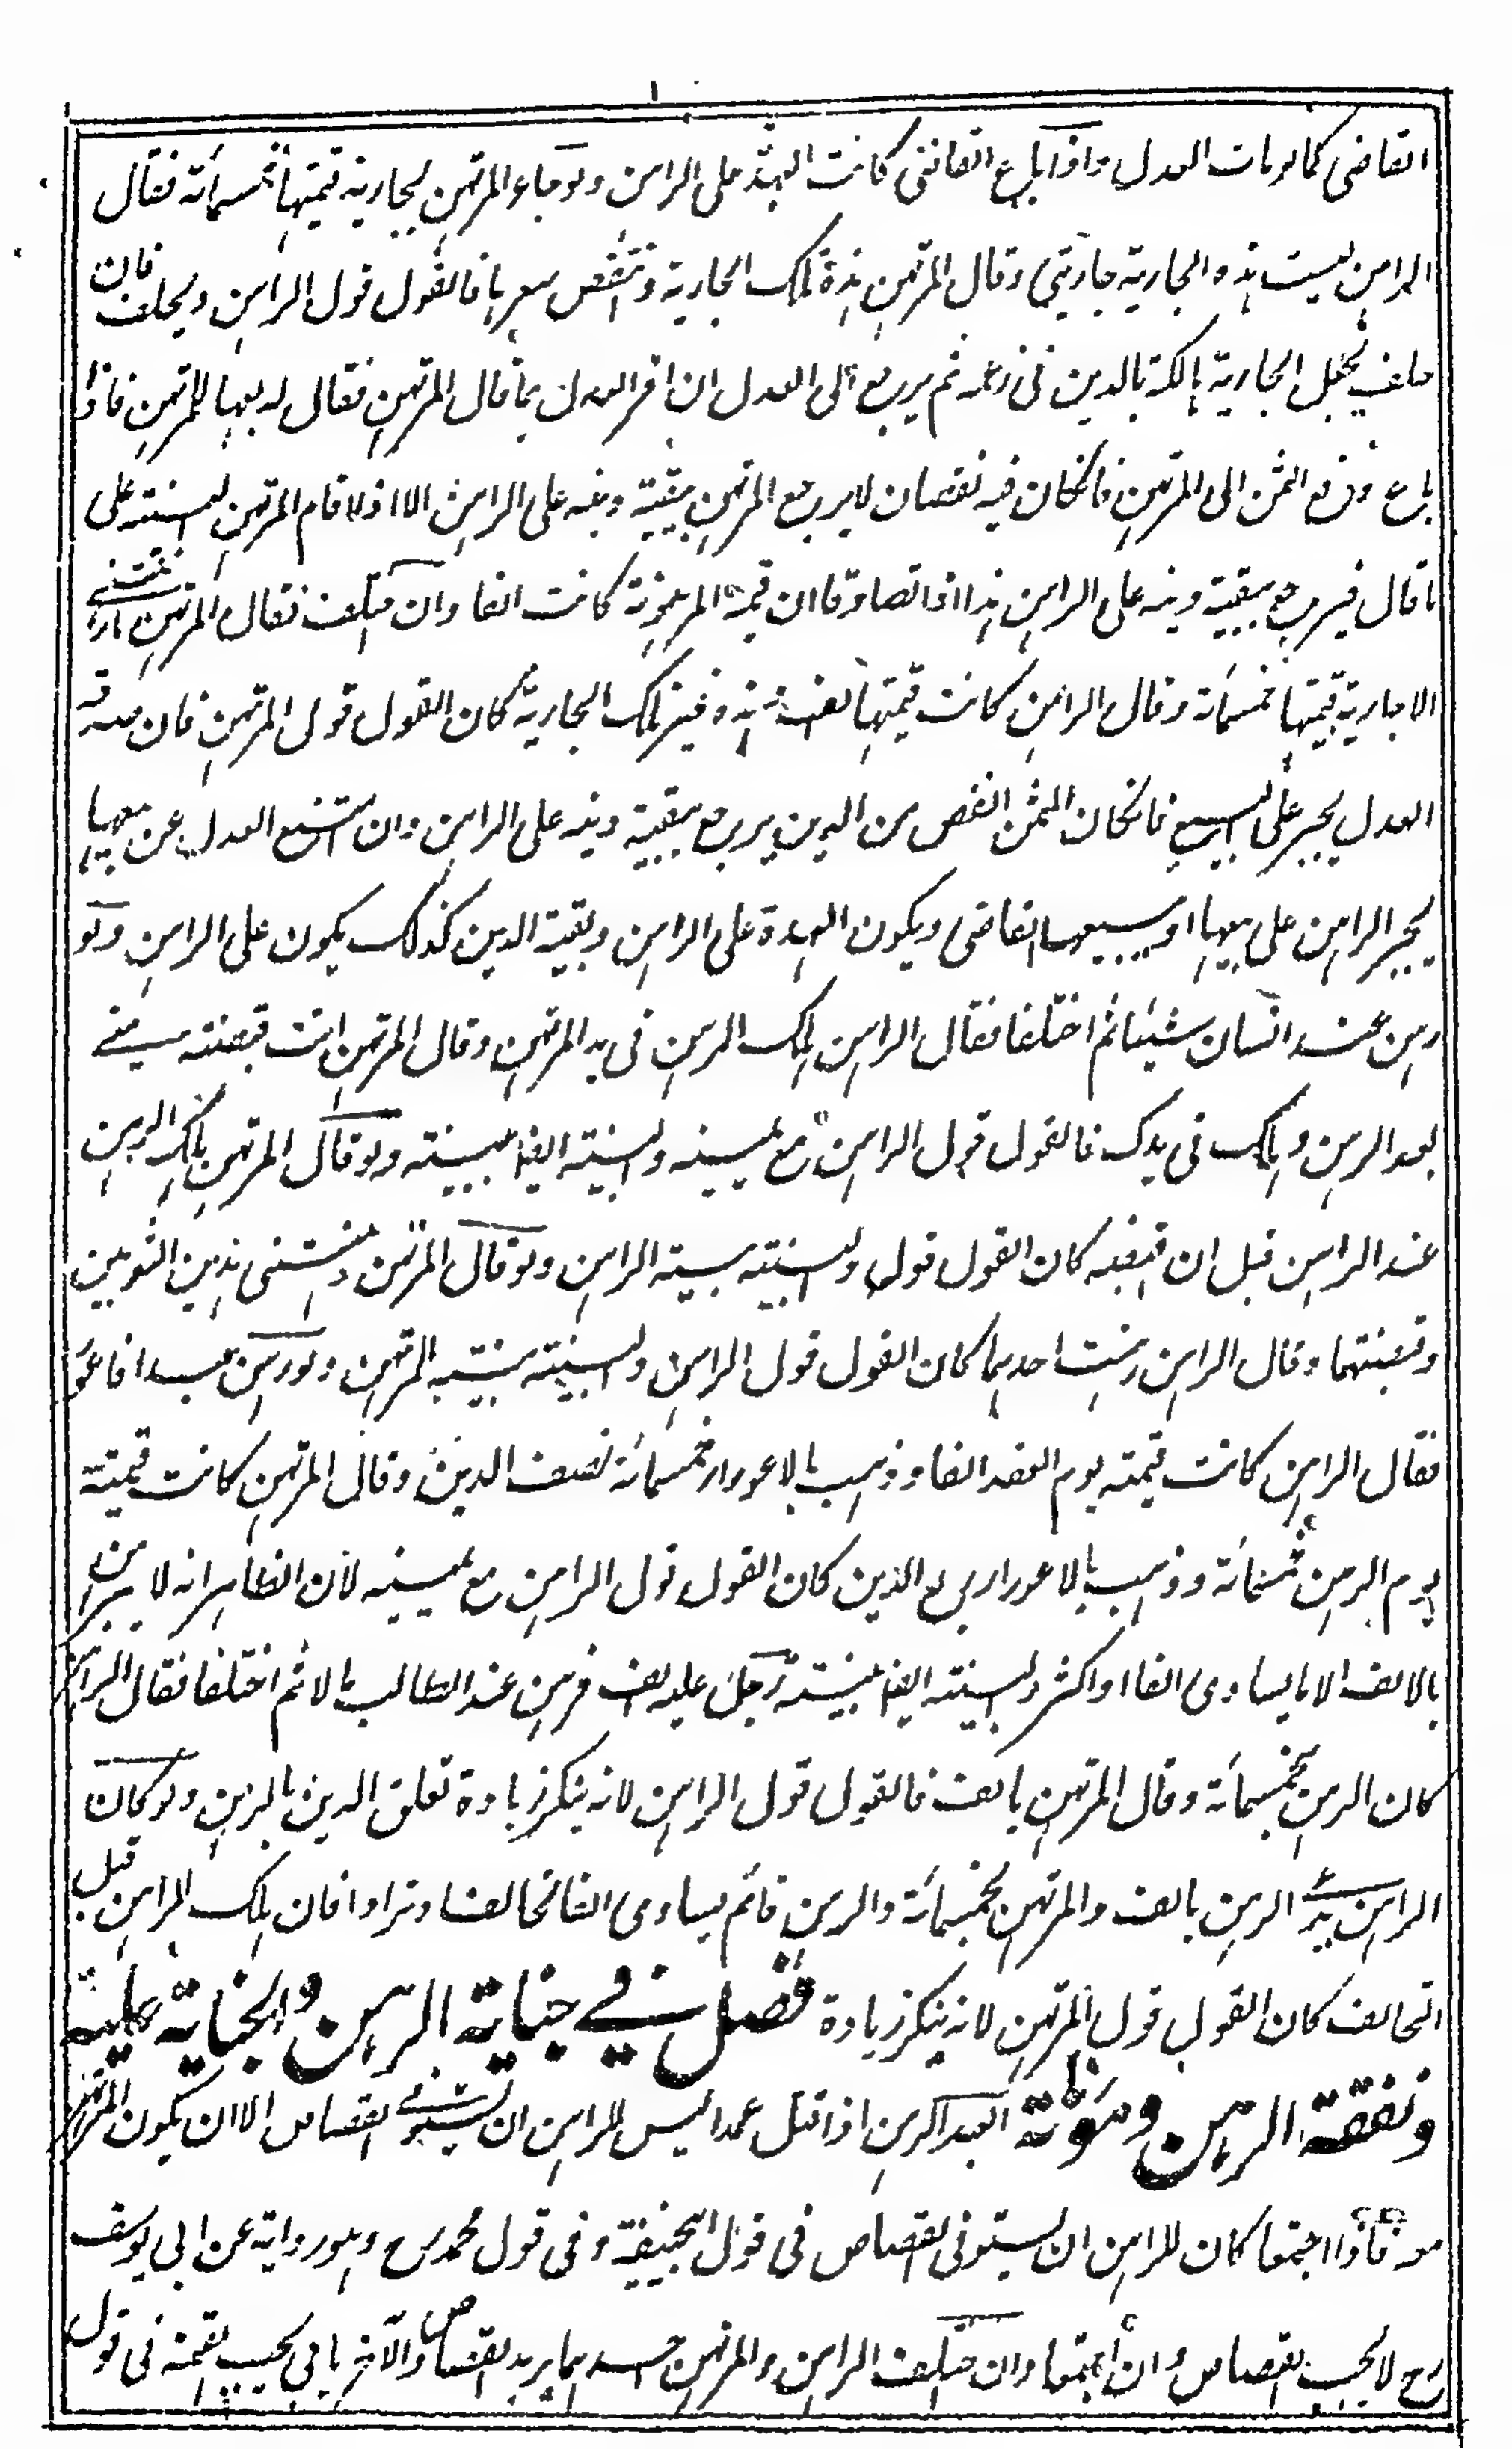 القاضى كما لو مات العدل واذا باع القاضى كانت العهدة على الراهن ولو جاء المرتهن بجارية قيمتها خمسمائة فقال
الراهن ليست هذه الجارية جاريتى وقال المرتهن هذه تلك الجارية وانتقص سعرها فالقول قول الراهن ويحلف فان
حلف تجعل الجارية هالكة بالدين فى زعمه ثم يرجع الى العدل ان اقر العدل بما قال المرتهن فقال له بعها للمرتهن فاذا
باع ودفع الثمن الى المرتهن فانكان فيه نقصان لا يرجع المرتهن ببقية دينه على الراهن الا اذا اقام المرتهن البينة على
ما قال فيرجع ببقية دينه على الراهن هذا اذا تصادقا ان قيمة المرهونة كانت الفا وان اختلفا فقال المرتهن ما رهنتنى
الا جارية قيمتها خمسمائة وقال الراهن كانت قيمتها الف هذه غير تلك الجارية كان القول قول المرتهن فان صدقه
العدل يجبر على البيع فانكان الثمن انقص من الدين يرجع ببقية دينه على الراهن وان امتنع العدل عن بيعها
يجبر الراهن على بيعها او يبيعها القاضى ويكون العهدة على الراهن وبقية الدين كذلك يكون على الراهن ولو
رهن عند انسان شيئا ثم اختلفا فقال الراهن هلك الرهن فى يد المرتهن وقال المرتهن انت قبضته منى
بعد الرهن وهلك فى يدك فالقول قول الراهن مع يمينه والبينة ايضا بينته ولو قال المرتهن هلك الرهن
عند الراهن قبل ان اقبضه كان القول قوله والبينة بينة الراهن ولو قال المرتهن رهنتنى هذين الثوبين
وقبضتهما وقال الراهن رهنت احدهما كان القول قول الراهن والبينة بينة المرتهن ولو رهن عبدا فاعور
فقال الراهن كانت قيمته يوم العقد الفا وذهب بالاعورار خمسمائة نصف الدين وقال المرتهن كانت قيمته
يوم الرهن خمسمائة وذهب بالاعورار ربع الدين كان القول قول الراهن مع يمينه لان الظاهر انه لا يرهن
بالالف الا ما يساوى الفا او اكثر والبينة ايضا بينته رجل عليه الف فرهن عند الطالب مالا ثم اختلفا فقال الراهن
كان الرهن بخمسمائة وقال المرتهن بالف فالقول قول الراهن لانه ينكر زيادة تعلق الدين بالرهن ولو كان
الراهن يدعى الرهن بالف والمرتهن بخمسمائة والرهن قائم يساوى الفا تحالفا وترادا فان هلك الراهن قبل
التحالف كان القول قول المرتهن لانه ينكر زيادة فصل فى جناية الرهن والجناية عليه
ونفقة الرهن ومؤنة العبد الرهن اذا قتل عمدا ليس للراهن ان يستوفى القصاص الا ان يكون المرتهن
معه فاذا اجتمعا كان للراهن ان يستوفى القصاص فى قول ابيحنيفة وفى قول محمد رح وهو رواية عن ابى يوسف
رح لا يجب القصاص وان اجتمعا وان اختلف الراهن والمرتهن احدهما يريد القصاص والآخر يابى يجب القيمة فى قول